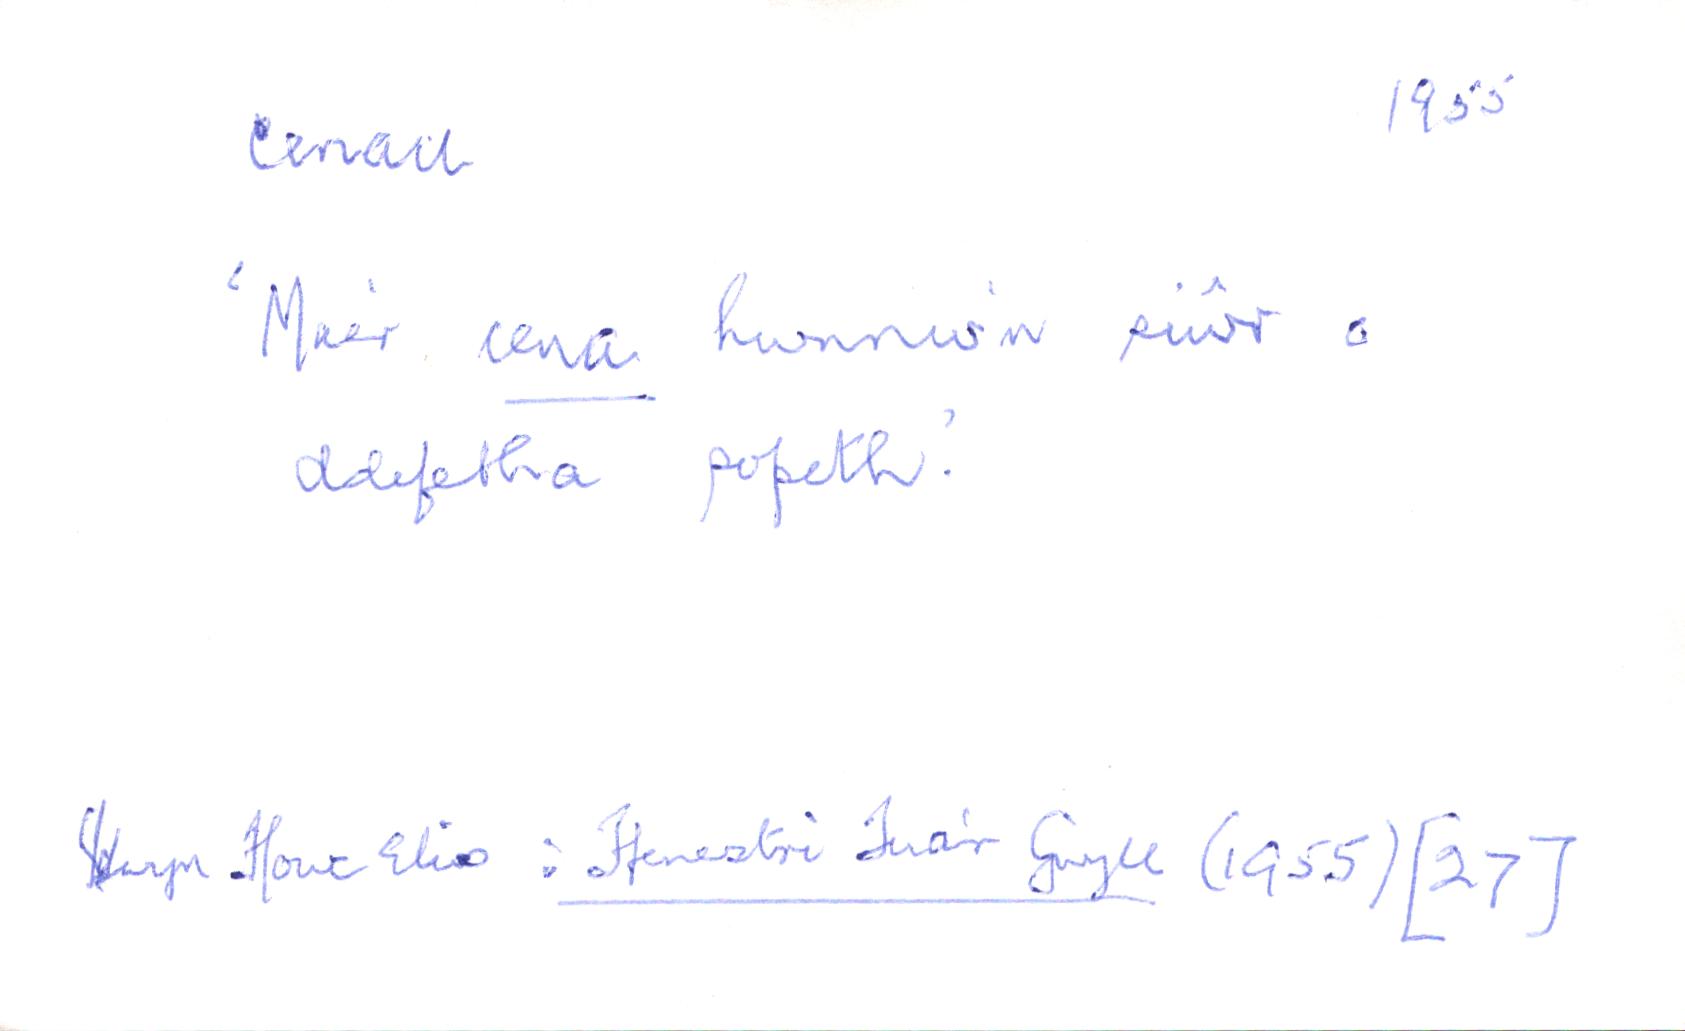 1955
cenau
'Mae'r cena hwnnw'n siŵr o
ddifetha popeth.'
Islwyn Ffowc Elis : Ffenestri Tua'r Gwyll (1955) [27]